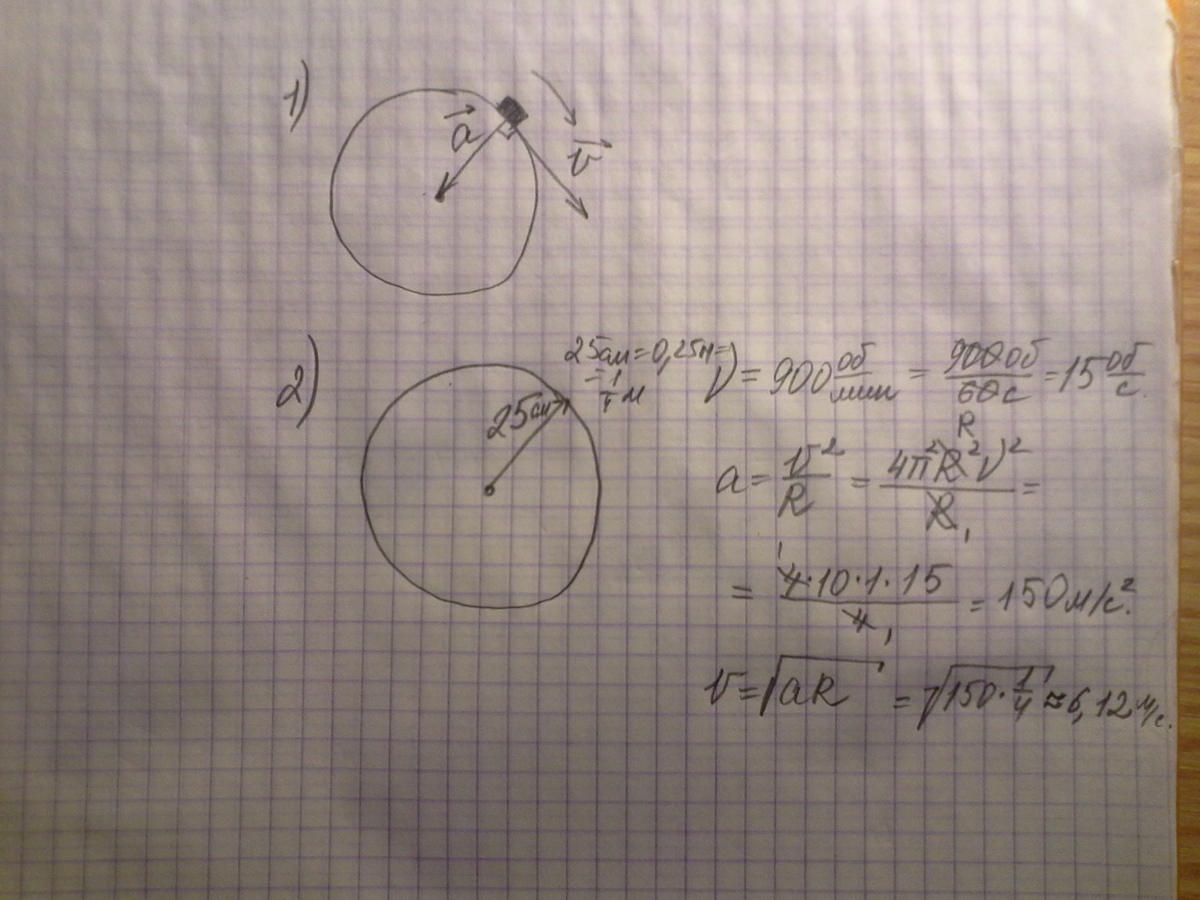 1)
a⃗
v⃗
2)
25см = 0,25м =
= 1/4 м
25см
ν = 900 об/мин = 900об/60с = 15 об/с
a = v²/R = 4π²R²ν²/R =
= 4·10·1·15/4 = 150 м/с².
v = √aR = √150·1/4 ≈ 6,12 м/с.